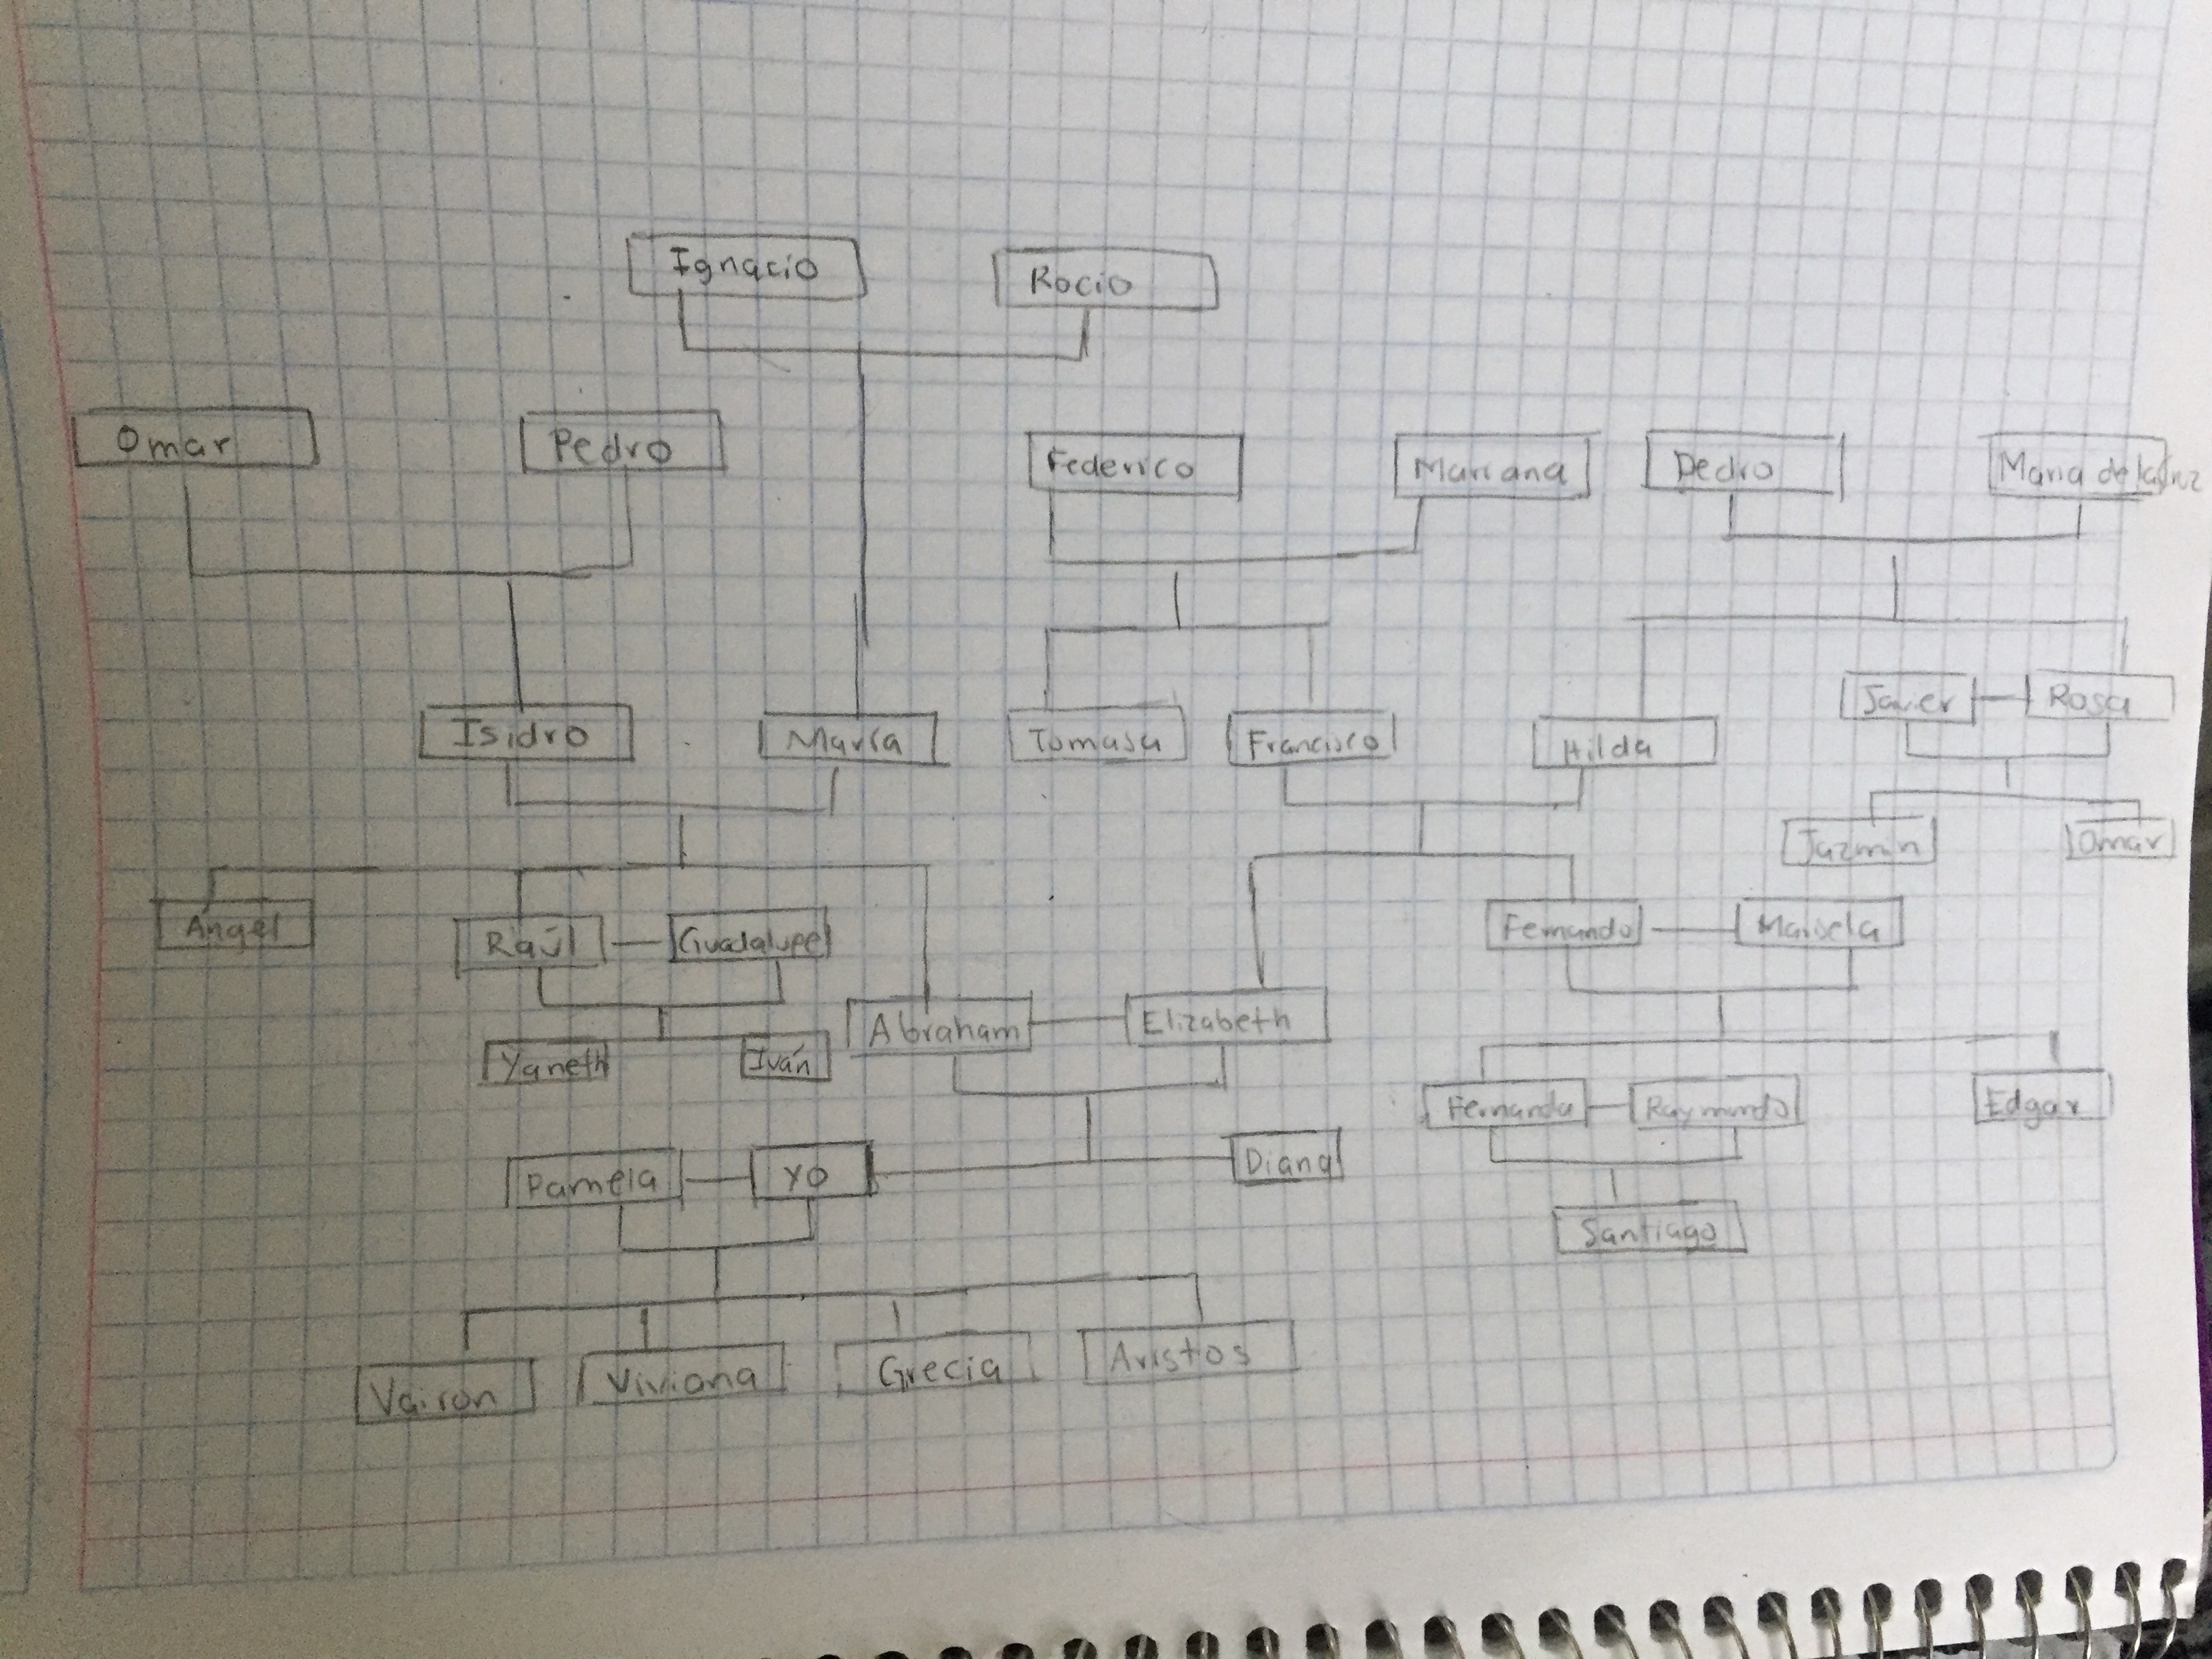 Ignacio Rocio
Omar Pedro Federico Mariana Pedro Maria de la Cruz
Javier Rosa
Isidro María Tomasa Francisco Hilda
Jazmin Omar
Angel Raúl Guadalupe Fernando Marisela
Abraham Elizabeth
Yaneth Iván
Fernanda Raymundo Edgar
Pamela yo Diana
Santiago
Vairon Viviana Grecia Aristos